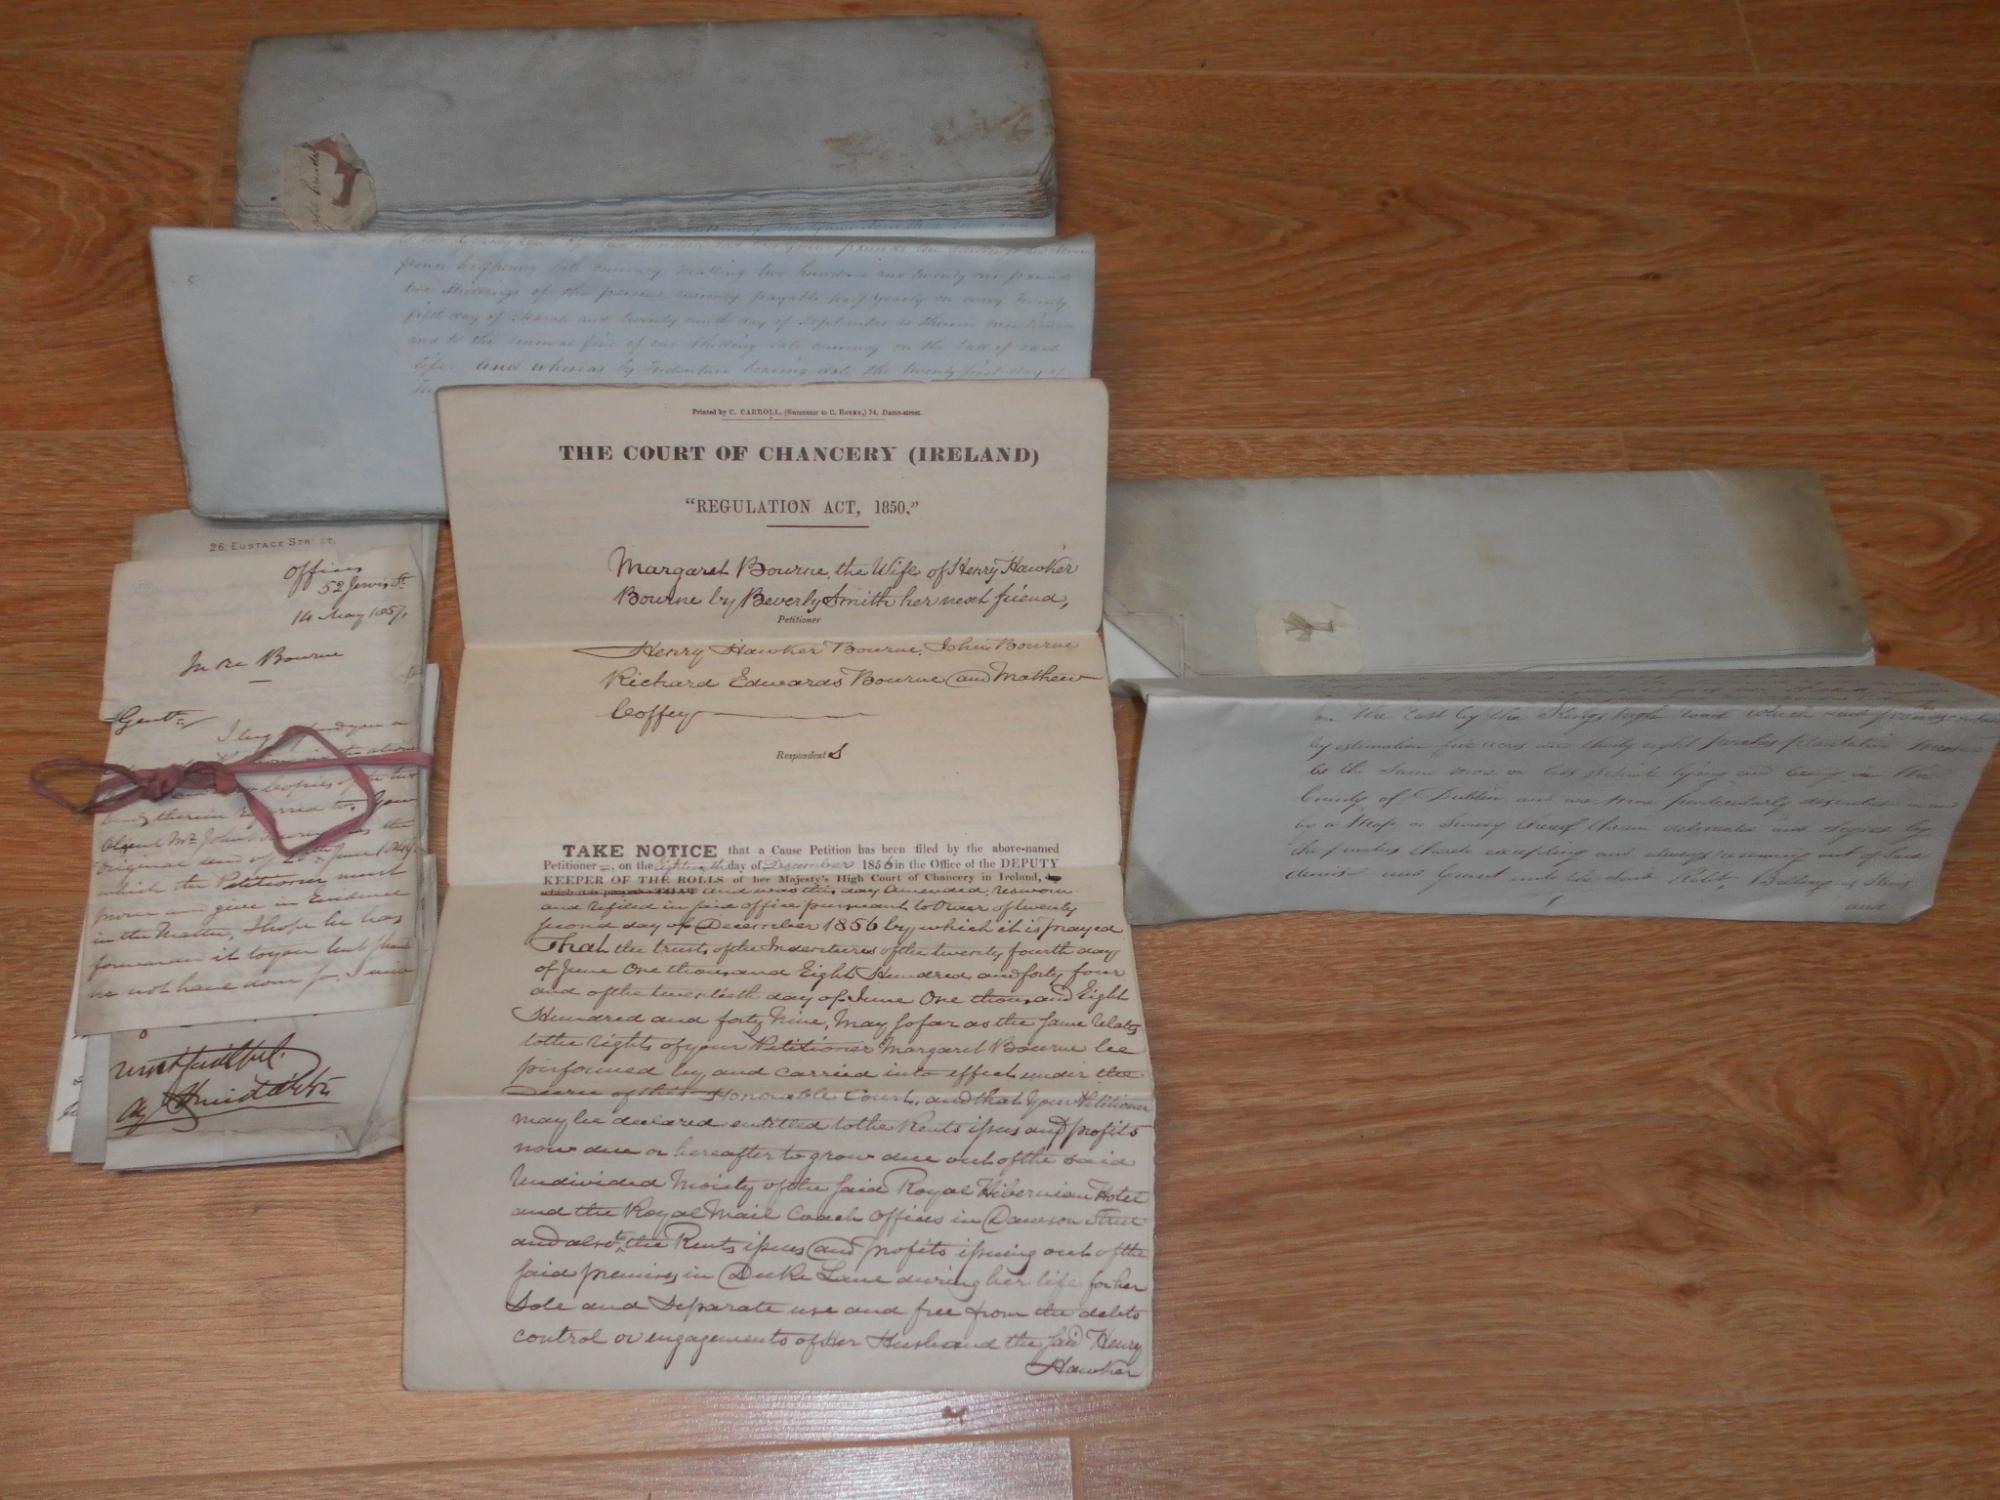 penny halfpenny late currency making two hundred and twenty one pounds
two shillings of the present currency payable half yearly on every twenty
fifth day of March and twenty ninth day of September as therein mentioned
and to the renewal fine of one shilling late currency on the fall of each
life. And whereas by Indenture bearing date the twenty first day of
5
Printed by C. CARROLL, (Successor to C. HOEY,) 74, Dame-street.
THE COURT OF CHANCERY (IRELAND)
"REGULATION ACT, 1850."
Margaret Bourne, the Wife of Henry Hawker
Bourne by Beverly Smith her next friend,
Petitioner
Henry Hawker Bourne, John Bourne
Richard Edwards Bourne and Mathew
Coffey
Respondent s
TAKE NOTICE that a Cause Petition has been filed by the above-named
Petitioner, on the eighteenth day of December 1856 in the Office of the DEPUTY
KEEPER OF THE ROLLS of her Majesty's High Court of Chancery in Ireland,
and was this day amended, resworn
and refiled in said office pursuant to Order of twenty
second day of December 1856 by which it is prayed
That the trusts of the Indentures of the twenty fourth day
of June One thousand Eight Hundred and forty four
and of the twentieth day of June One thousand Eight
Hundred and forty Nine, May so far as the same relate
to the rights of your Petitioner Margaret Bourne be
performed by and carried into effect under the
Decree of this Honourable Court, and that your Petitioner
may be declared entitled to the Rents issues and profits
now due or hereafter to grow due out of the said
Undivided Moiety of the said Royal Hibernian Hotel
and the Royal Mail Coach Offices in Dawson Street
and also to the Rents issues and profits issuing out of the
said premises in Duke Lane during her life for her
Sole and Separate use and free from the debts
control or engagements of Her Husband the said Henry
Hawker
26, EUSTACE STREET.
Offices
52 Jervis St
14 May 1857.
In Re Bourne
Gentn
I beg to send you
copies of the two
therein referred to. Your
Client Mr John Bourne has the
Original deed of 20th June 1849
which the Petitioner must
prove and give in Evidence
in the Matter, I hope he has
forwarded it to you but should
he not have done so, I will
on the East by the Kings high road which said premises contain
by estimation five acres and thirty eight perches plantation measure
be the same more or less situate lying and being in the
County of Dublin and are more particularly described in and
by a Map or Survey thereof therein delineated and signed by
the parties thereto excepting and always reserving out of said
demise and Grant unto the said
and